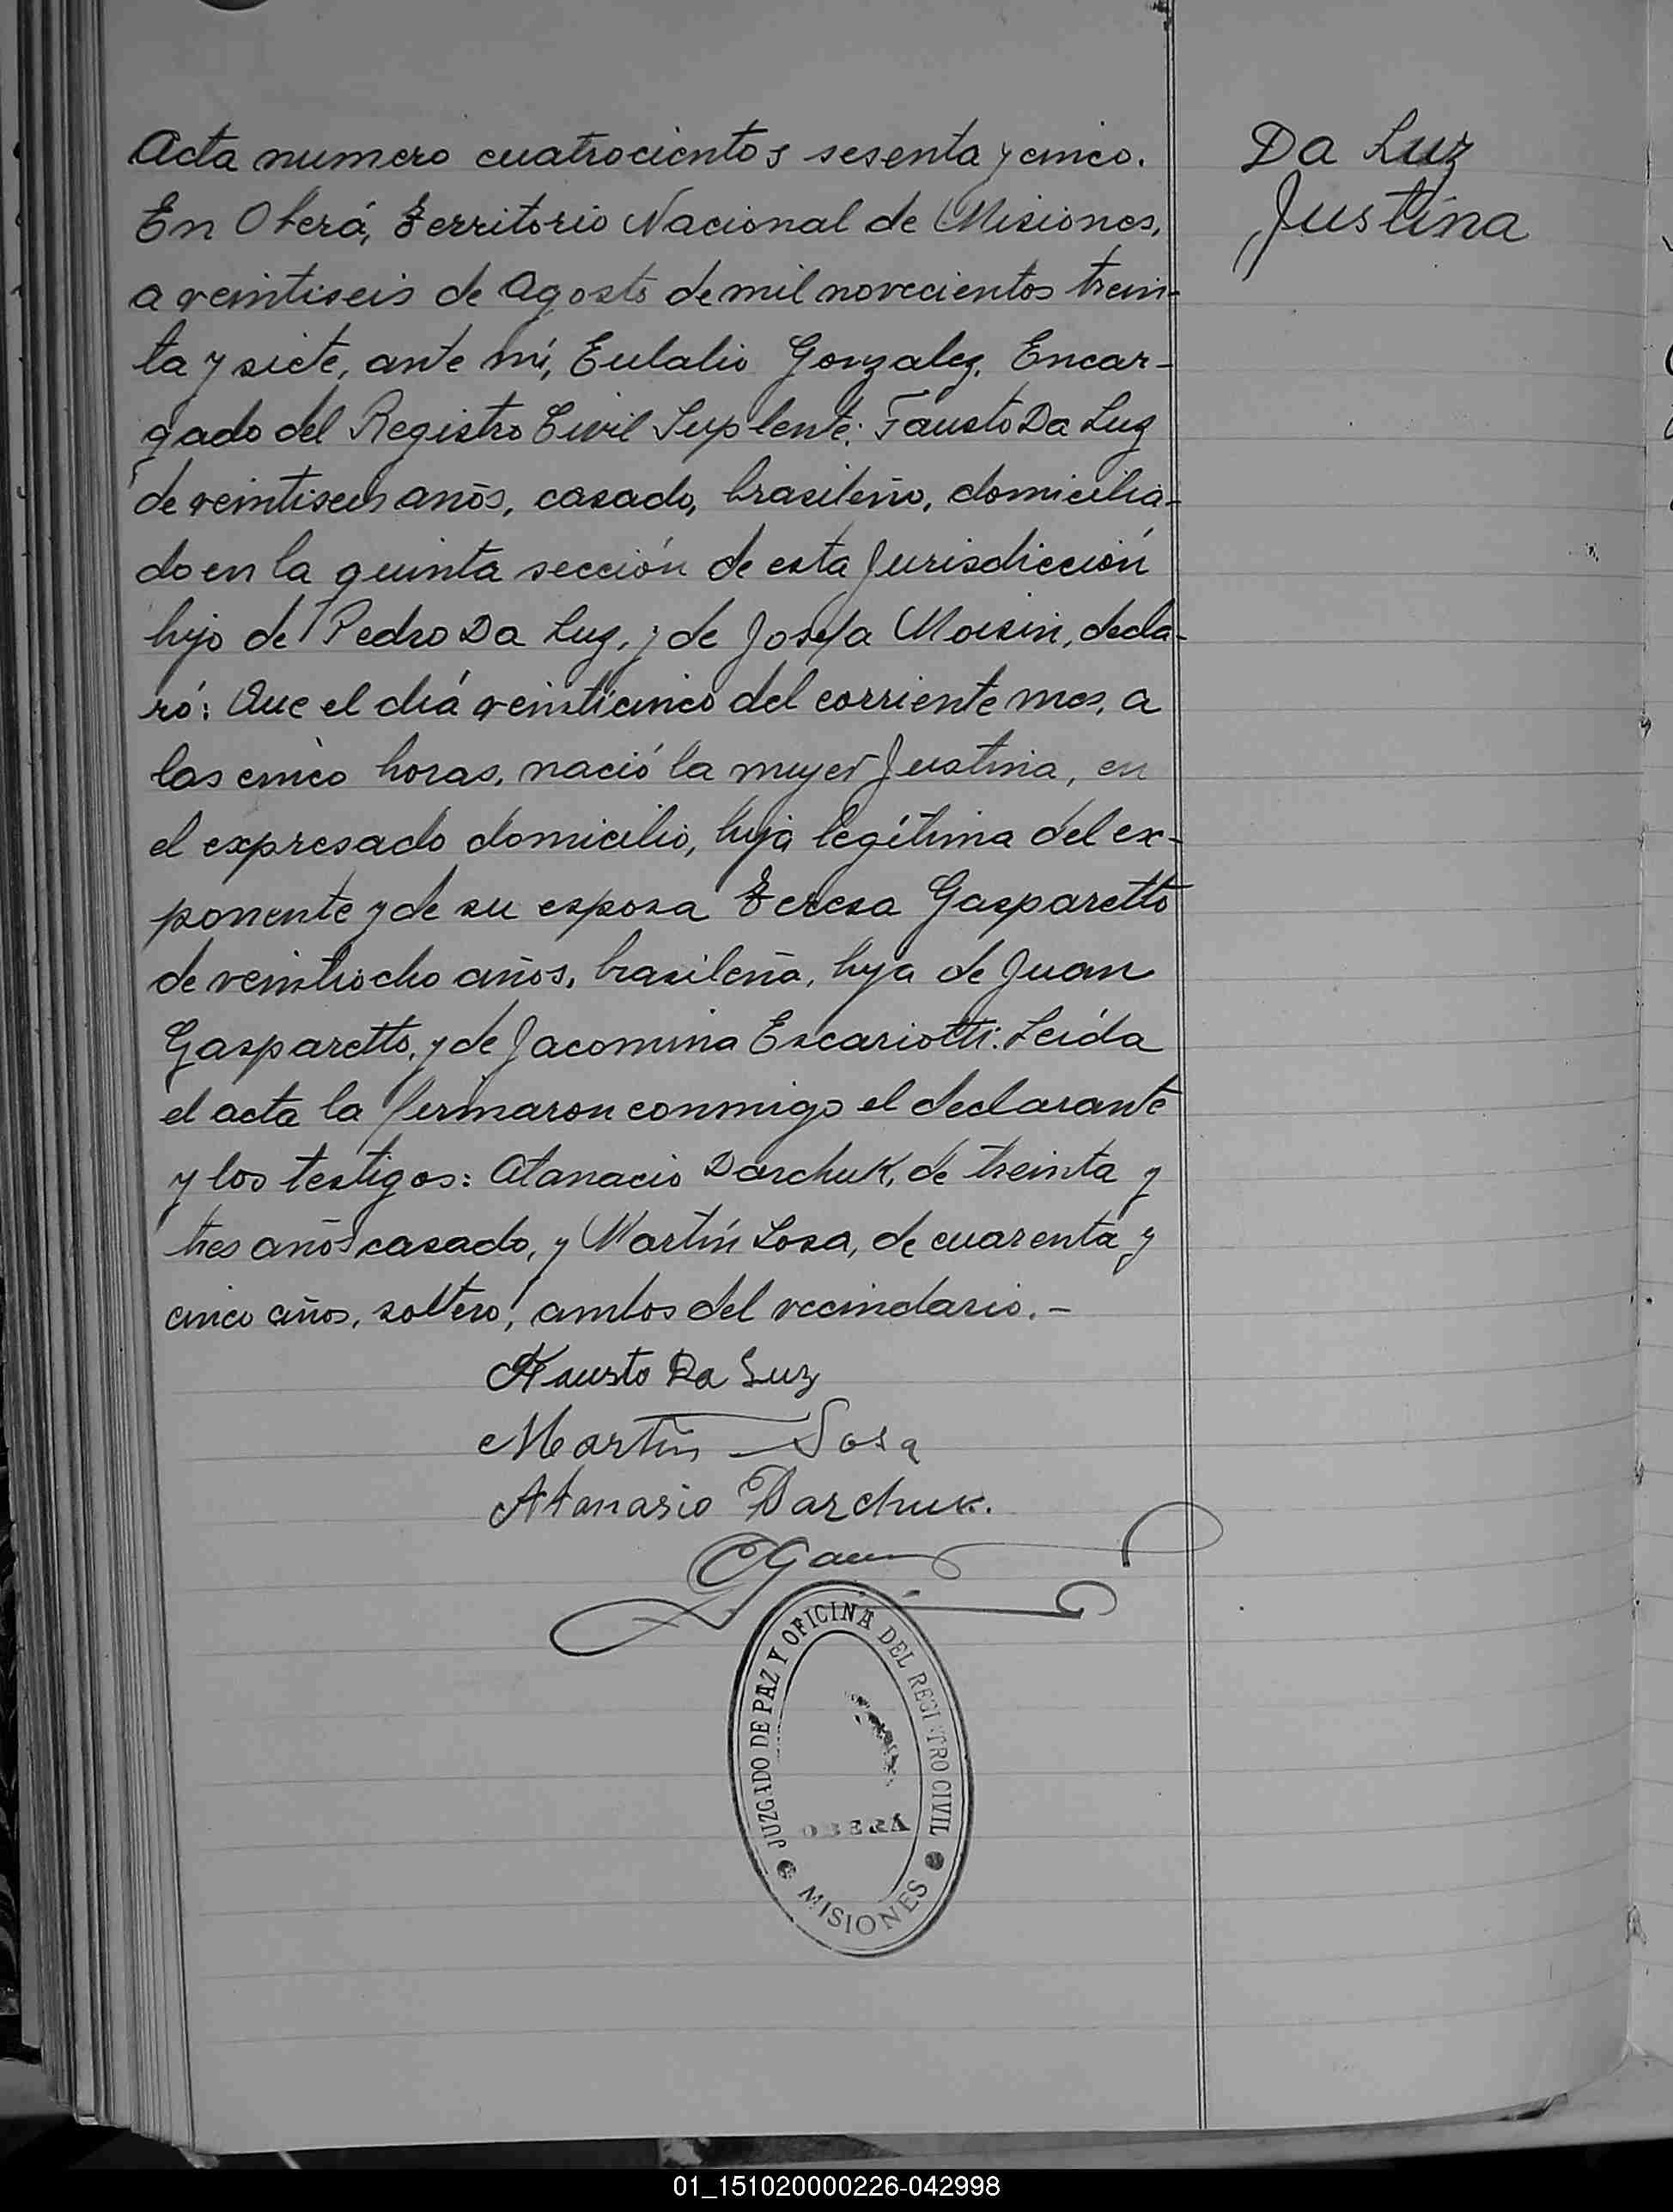 Acta numero cuatrocientos sesenta y cinco.
En Oberá, Territorio Nacional de Misiones,
a veintiseis de Agosto de mil novecientos trein-
ta y siete, ante mi, Eulalio Gonzalez, Encar-
gado del Registro Civil Suplente: Fausto Da Luz
de veintiseis años, casado, brasileño, domicilia-
do en la quinta sección de esta Jurisdicción
hijo de Pedro Da Luz, y de Josefa Moisin, decla-
ró: Que el día veinticinco del corriente mes, a
las cinco horas, nació la mujer Justina, en
el expresado domicilio, hija legítima del ex-
ponente y de su esposa Teresa Gasparetto
de veintiocho años, brasileña, hija de Juan
Gasparetto, y de Jacomina Escariotti: Leída
el acta la firmaron conmigo el declarante
y los testigos: Atanacio Darchuk, de treinta y
tres años casado, y Martín Sosa, de cuarenta y
cinco años, soltero, ambos del vecindario.-
Da Luz
Justina
Fausto Da Luz
Martín Sosa
Atanasio Darchuk.
JUZGADO DE PAZ Y OFICINA DEL REGISTRO CIVIL
OBERÁ
MISIONES
01_151020000226-042998